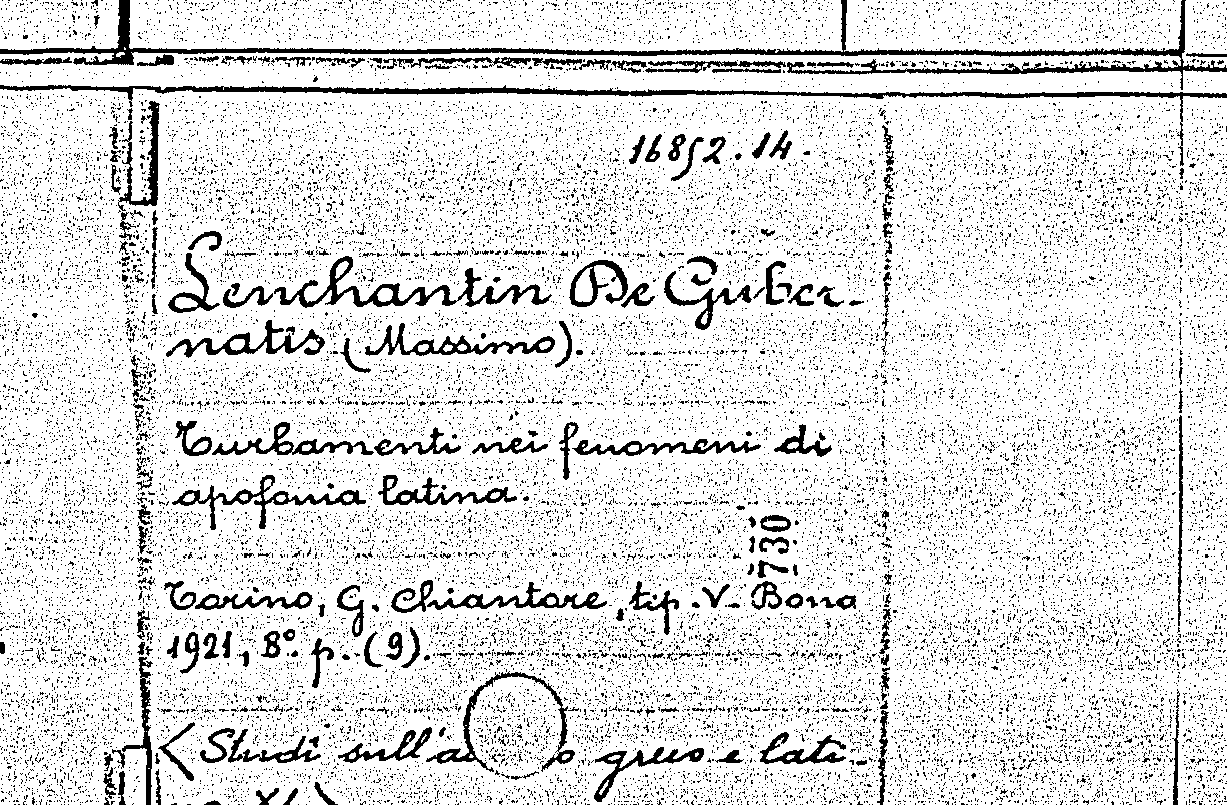 16852.14.
Lenchantin De Guber-
natis (Massimo).
Turbamenti nei fenomeni di
apofonia latina.
730
Torino, G. Chiantore, tip. V. Bona
1921, 8° p. (9).
<Studi sull' greco e lati-